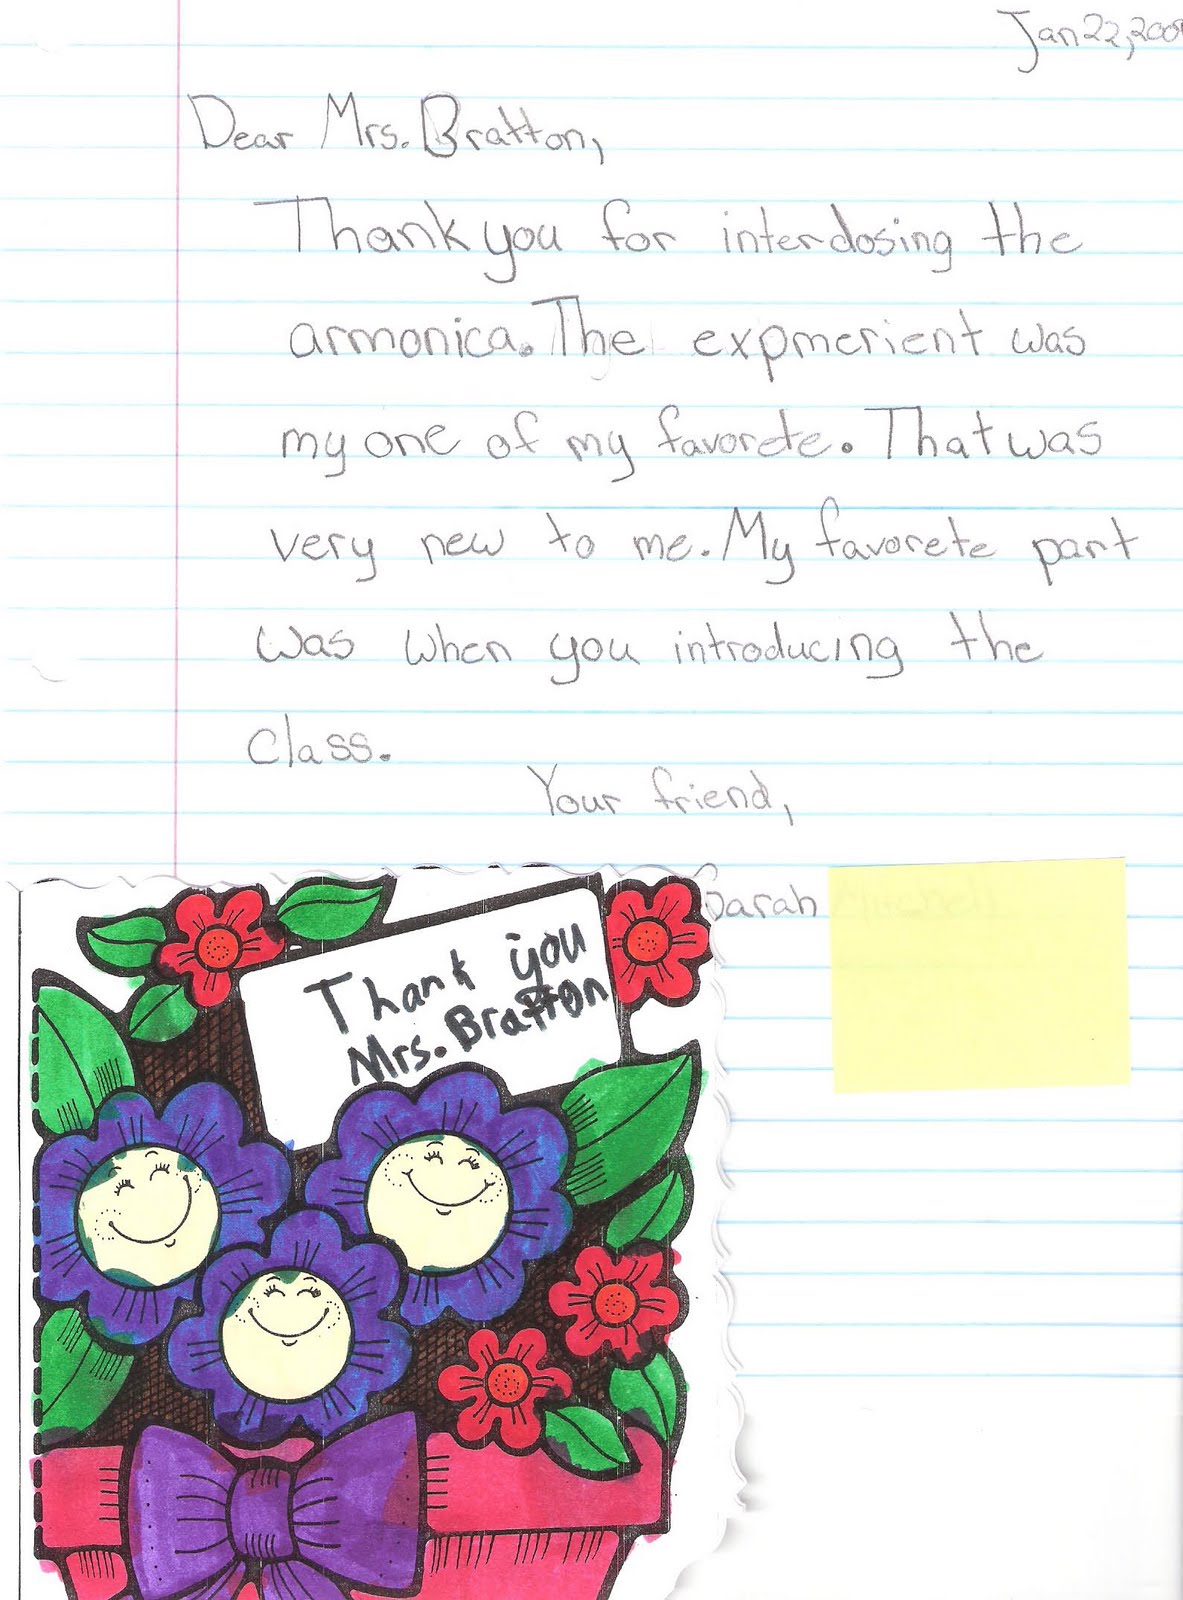 Jan 22, 200
Dear Mrs. Bratton,
Thank you for interdosing the
armonica. The expmerient was
my one of my favorete. That was
very new to me. My favorete part
was when you introducing the
class.
Your friend,
Sarah
Thank you
Mrs. Bratton